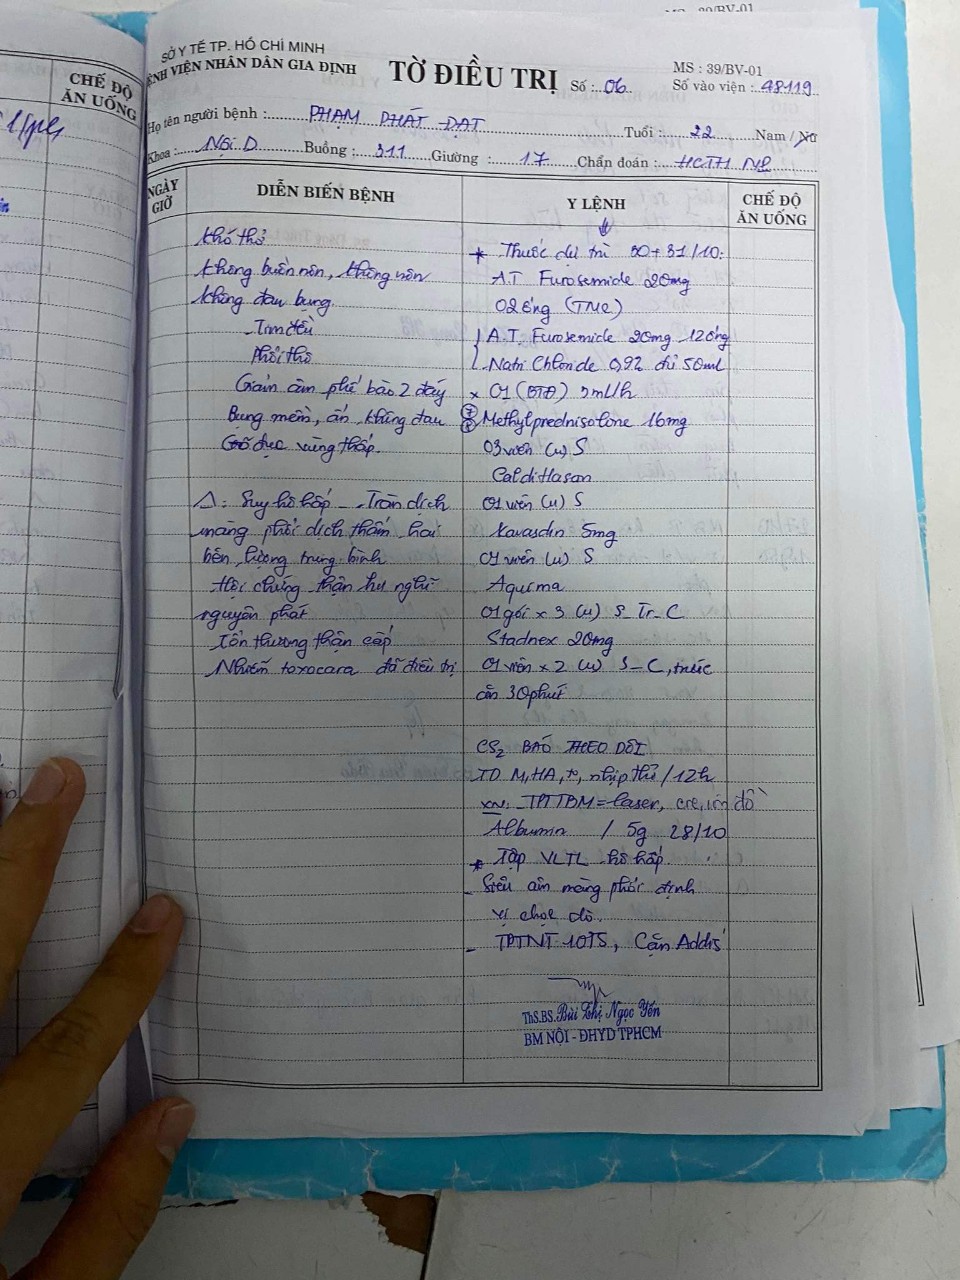 SỞ Y TẾ TP. HỒ CHÍ MINH
BỆNH VIỆN NHÂN DÂN GIA ĐỊNH
TỜ ĐIỀU TRỊ
Số : 06
MS : 39/BV-01
Số vào viện : 48119
Họ tên người bệnh : PHẠM PHÁT ĐẠT Tuổi : 22 Nam / Nữ
Khoa : Nội D Buồng : 311 Giường : 17 Chẩn đoán : HCTH NP
CHẾ ĐỘ ĂN UỐNG
NGÀY GIỜ
DIỄN BIẾN BỆNH
Y LỆNH
CHẾ ĐỘ ĂN UỐNG
Khó thở
Không buồn nôn, không nôn
Không đau bụng
Tim đều
Phổi thô
Giảm âm phế bào 2 đáy
Bụng mềm, ấn không đau
Gõ đục vùng thấp.
Δ: Suy hô hấp – Tràn dịch
màng phổi dịch thấm hai
bên, lượng trung bình
Hội chứng thận hư nghĩ
nguyên phát
Tổn thương thận cấp
Nhiễm toxocara đã điều trị
* Thuốc dự trù 30+31/10:
A.T Furosemide 20mg
02 ống (TMC)
A.T. Furosemide 20mg 12 ống
Natri Chloride 0,9% đủ 50ml
x 01 (BTĐ) 5ml/h
Methylprednisolone 16mg
03 viên (u) S
CaldiHasan
01 viên (u) S
Kavasdin 5mg
01 viên (u) S
Aquima
01 gói x 3 (u) S Tr C
Stadnex 20mg
01 viên x 2 (u) S – C, trước
ăn 30 phút
CS2 BÁO THEO DÕI
TD M, HA, t°, nhịp thở / 12h
XN: TPTTBM = laser, cre, ion đồ
Albumin / 5g 28/10
* Tập VLTL hô hấp.
- Siêu âm màng phổi định
vị chọc dò.
- TPTNT 10TS, Cặn Addis
ThS.BS. Bùi Thị Ngọc Yến
BM NỘI - ĐHYD TPHCM